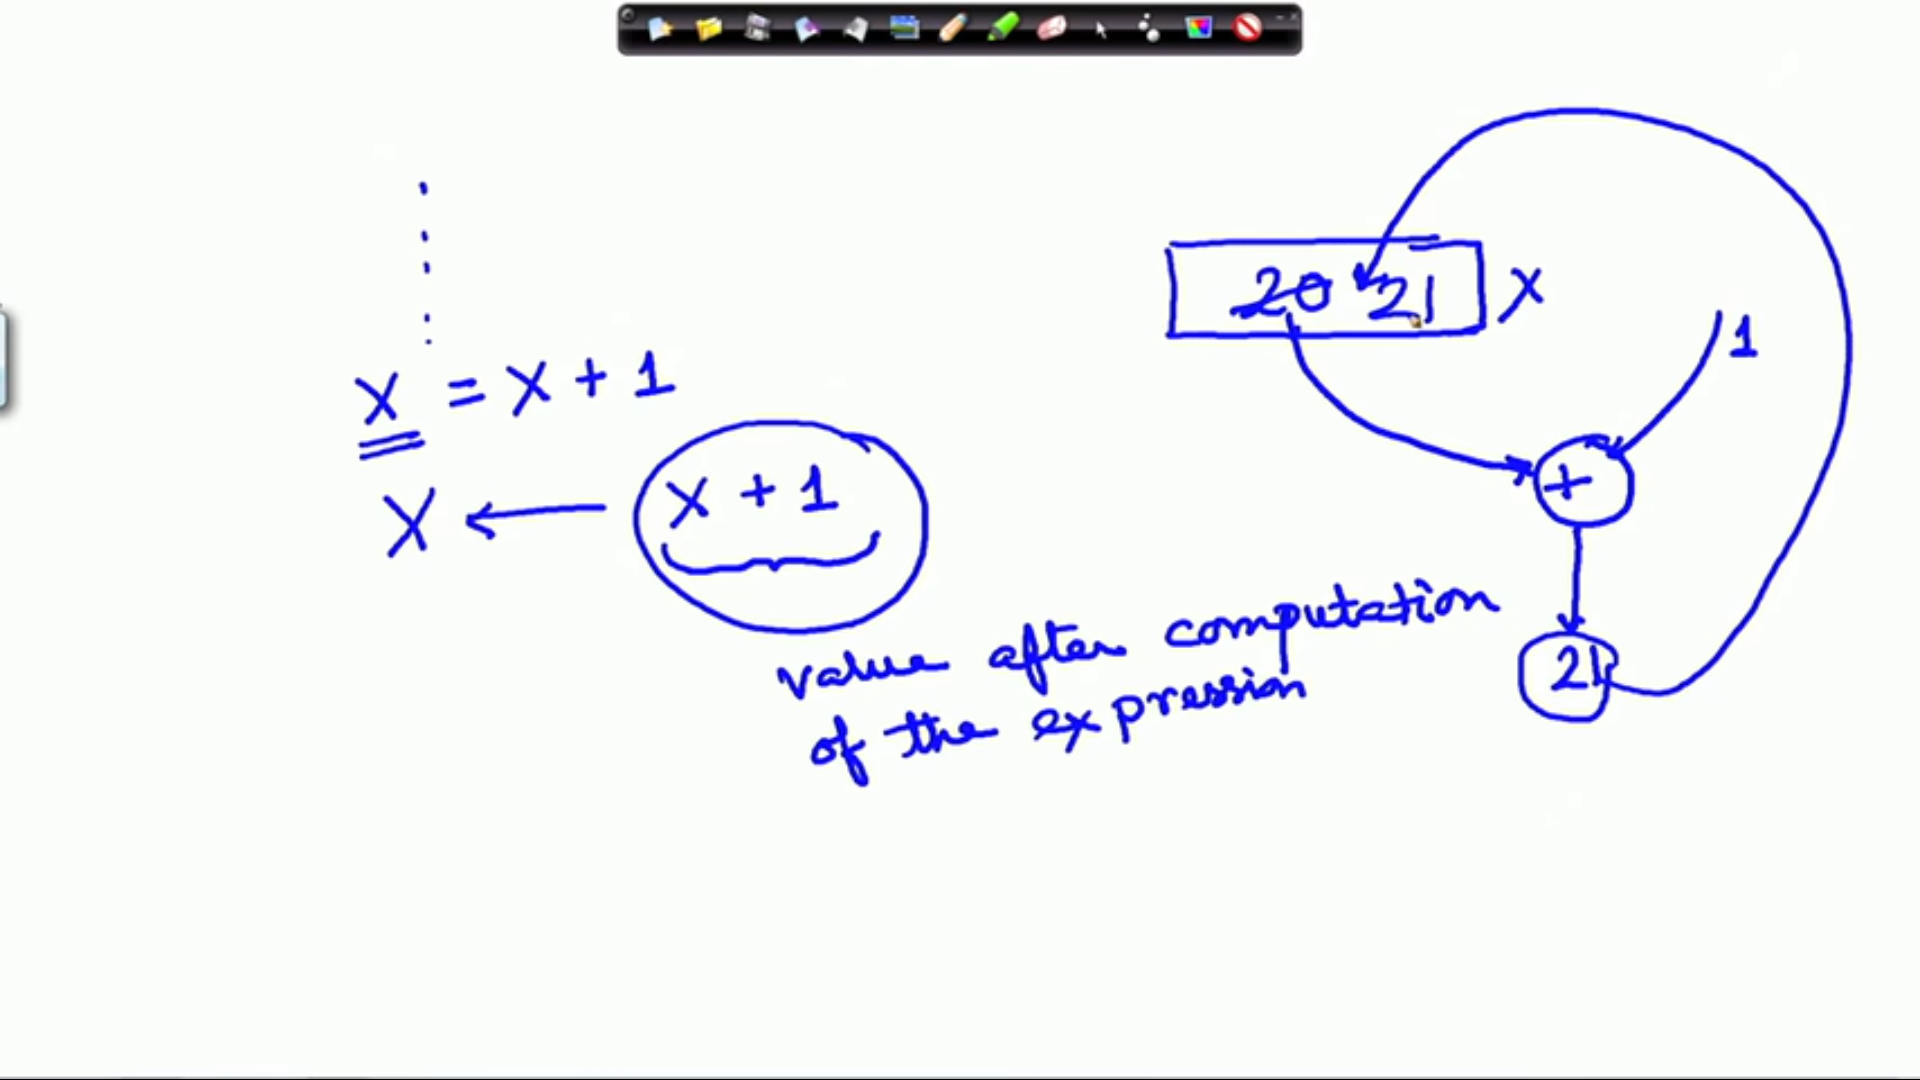 x = x + 1
x ← x + 1
value after computation
of the expression
20 21 x
1
+
21